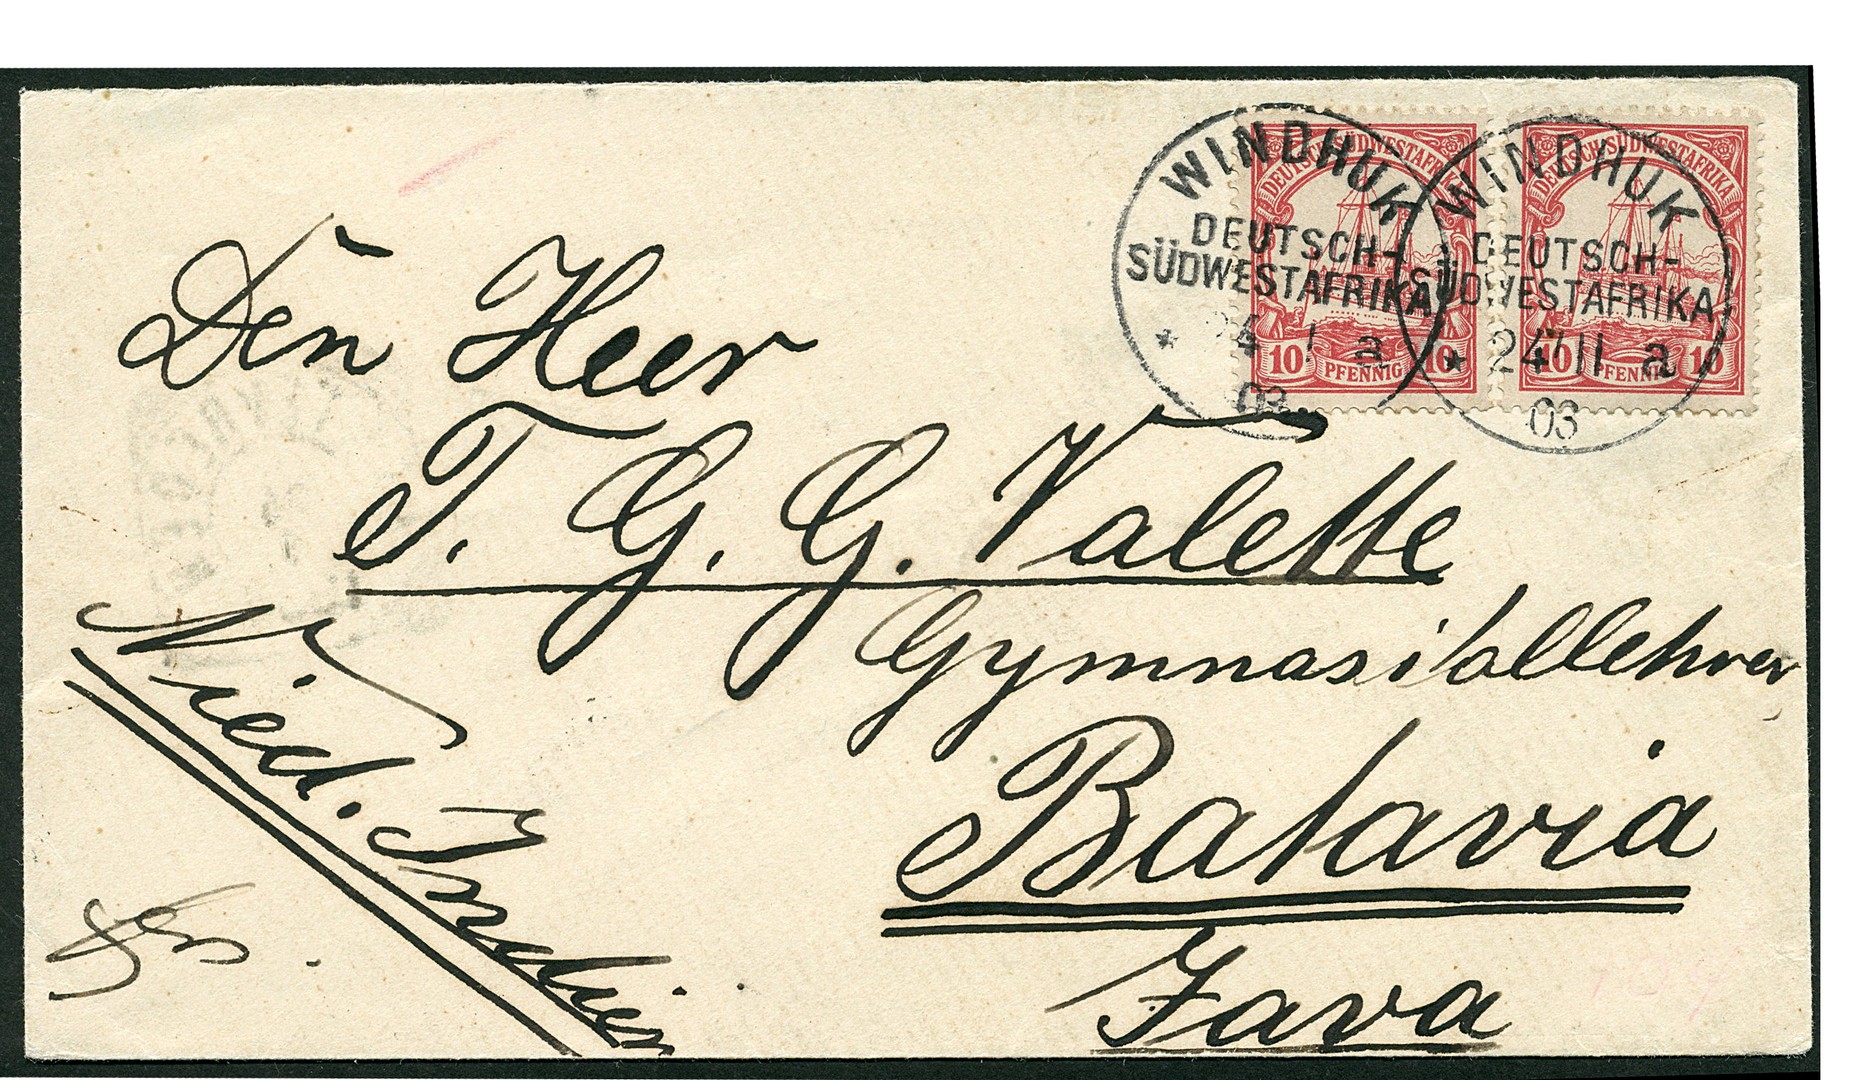 WINDHUK
DEUTSCH-
SÜDWESTAFRIKA
24 a
03
WINDHUK
DEUTSCH-
SÜDWESTAFRIKA
24 11 a
03
DEUTSCH-SÜDWESTAFRIKA
10 PFENNIG 10
DEUTSCH-SÜDWESTAFRIKA
10 PFENNIG 10
Den Heer
T. G. G. Valette
Gymnasiallehrer
Batavia
Java
Nied. Indien